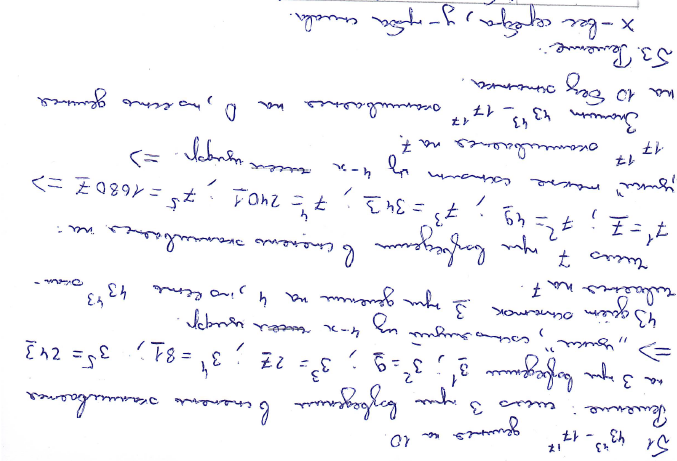 51 43⁴³ - 17¹⁷ делится на 10
Решение: число 3 при возведении в степень оканчивается
на 3 при возведении 3¹; 3² = 9; 3³ = 27; 3⁴ = 81; 3⁵ = 243
=> „цикл", состоящий из 4-х цифр.
43 даёт остаток 3 при делении на 4, то есть 43⁴³ окан-
чивается на 7.
Число 7 при возведении в степень оканчивается на:
7¹ = 7; 7² = 49; 7³ = 343; 7⁴ = 2401; 7⁵ = 16807 =>
„цикл" также состоит из 4-х цифр. =>
17¹⁷ оканчивается на 7.
Значит 43⁴³ - 17¹⁷ оканчивается на 0, то есть делится
на 10 без остатка.
53. Решение:
x - вес серебра, y - проба сплава.